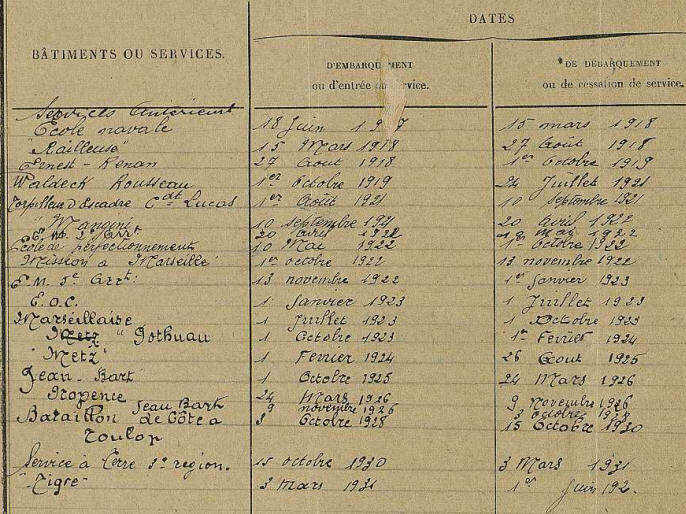 DATES
BÂTIMENTS OU SERVICES.
D'EMBARQUEMENT
ou d'entrée au service.
DE DÉBARQUEMENT
ou de cessation de service.
Services Antérieurs
École navale 18 Juin 1917 15 mars 1918
"Railleuse" 15 Mars 1918 27 Août 1918
Ernest-Renan 27 Aout 1918 1er Octobre 1919
Waldeck Rousseau 1er Octobre 1919 24 Juillet 1921
Torpilleur d'escadre Cdt Lucas 1er Août 1921 10 Septembre 1921
"Mangini 10 septembre 1921 20 Avril 1922
E.M. 5e Arrt 20 Avril 1922 18 Mai 1922
École de perfectionnement 10 Mai 1922 1er Octobre 1922
Mission à Marseille 1er octobre 1922 13 novembre 1922
E.M. 5e Arrt: 13 novembre 1922 1er Janvier 1923
E.O.C. 1 Janvier 1923 1 Juillet 1923
Marseillaise 1 Juillet 1923 1 Octobre 1923
Metz "Pothuau 1 Octobre 1923 1er Février 1924
"Metz" 1 Février 1924 26 Aout 1925
Jean-Bart" 1 Octobre 1925 24 Mars 1926
24 Mars 1926 9 Novembre 1926
Jean Bart 9 novembre 1926 3 octobre 1928
Bataillon de Côte à 3 Octobre 1928 15 Octobre 1930
Toulon
Service à Terre 5e région. 15 octobre 1930 3 Mars 1931
"Tigre" 3 Mars 1931 1er Juin 192.